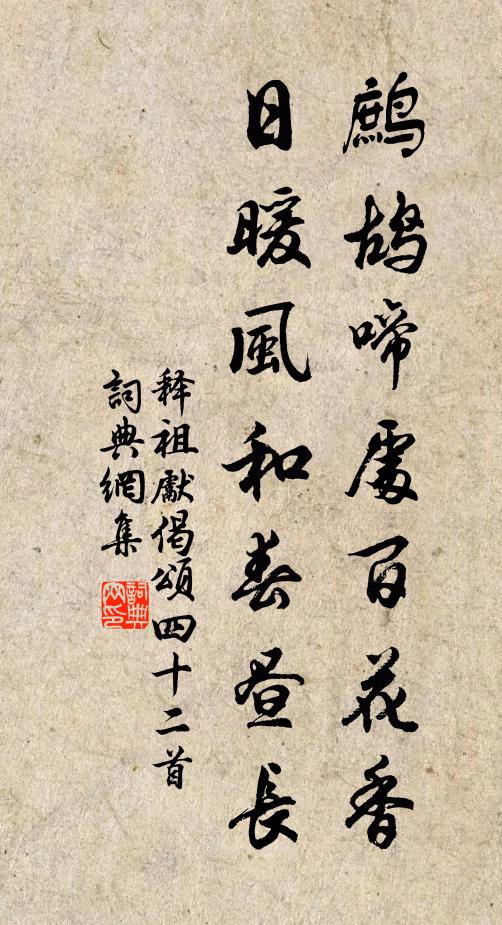 鷓鴣啼處百花香
日暖風和春晝長
释祖獻偈頌四十二首
詞典網集
詞典网印